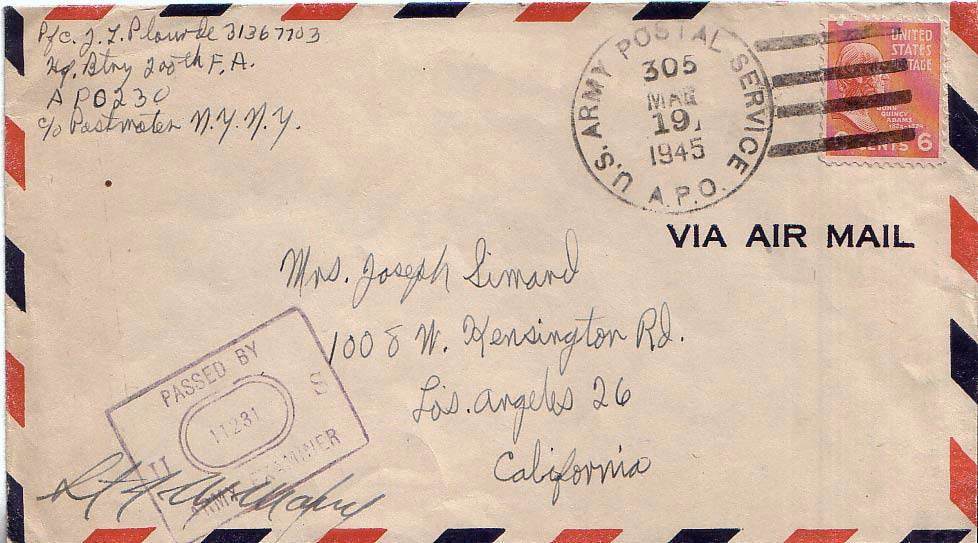 Pfc. J. L. Plourde 31367703
Hq. Btry 200th F.A.
APO 230
c/o Postmaster N.Y. N.Y.
U.S. ARMY POSTAL SERVICE
305
MAR
19
1945
A.P.O.
UNITED
STATES
POSTAGE
JOHN
QUINCY
ADAMS
1825-1829
6 CENTS 6
VIA AIR MAIL
Mrs. Joseph Simard
1008 W. Kensington Rd.
Los. Angeles 26
California
PASSED BY
U S
11231
ARMY EXAMINER